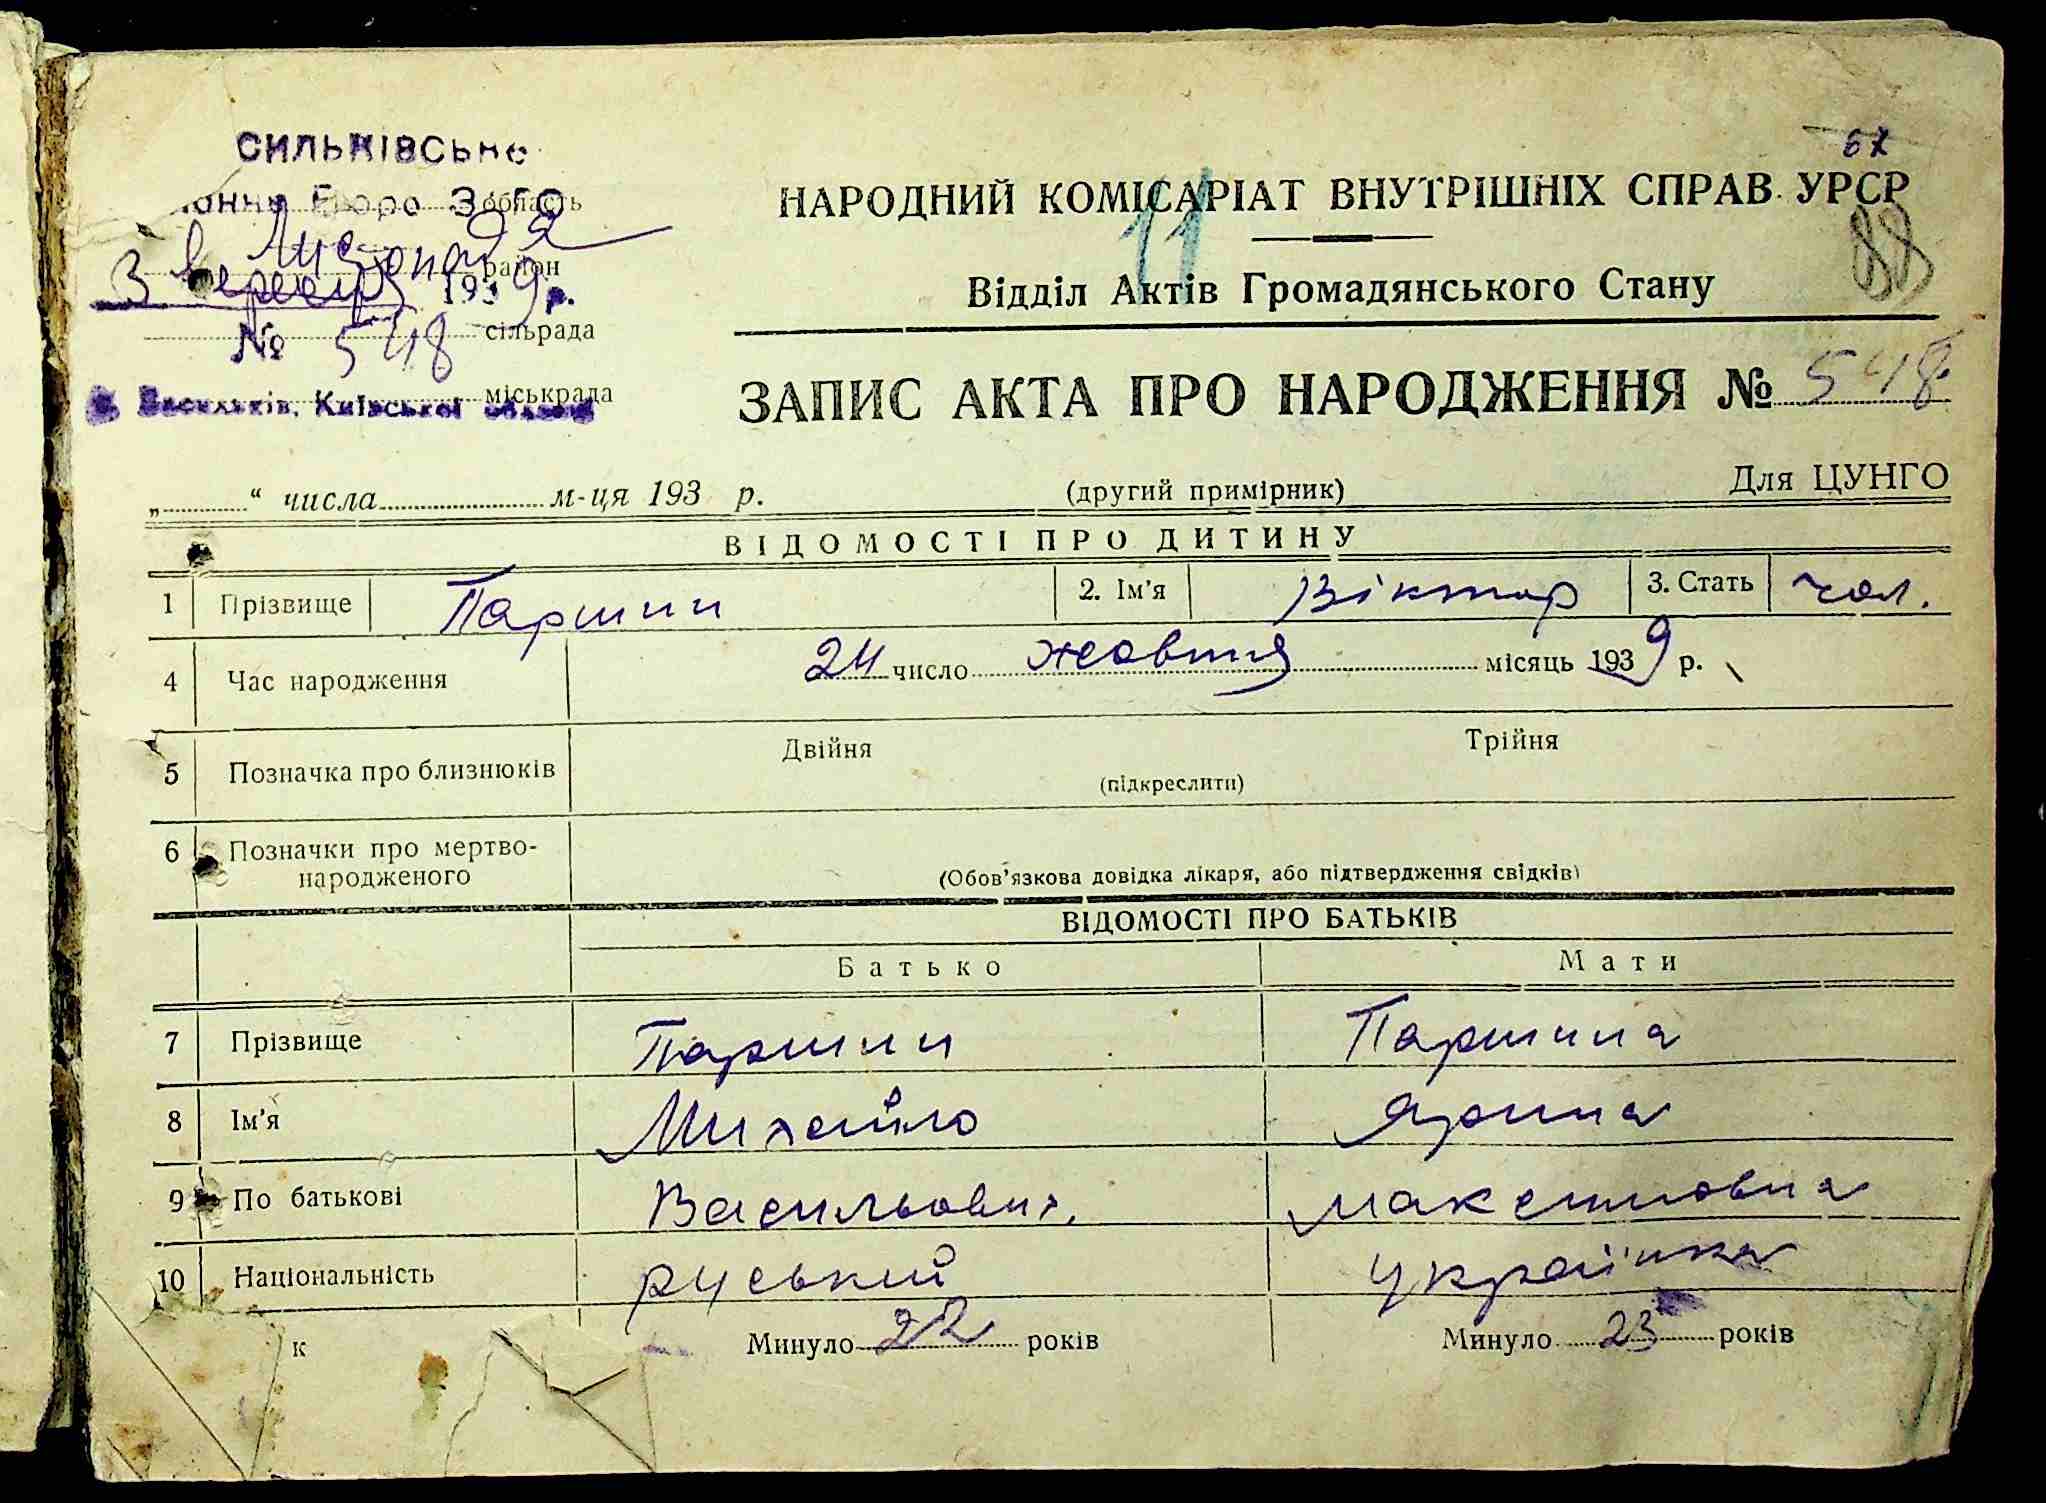 СИЛЬКІВСЬКЕ
Бюро ЗАГС область
Листопада
3 вересня 1939 р. район
№ 548 сільрада
м. Васильків, Київської області міськрада
67
НАРОДНИЙ КОМІСАРІАТ ВНУТРІШНІХ СПРАВ УРСР
11
88
Відділ Актів Громадянського Стану
ЗАПИС АКТА ПРО НАРОДЖЕННЯ № 548
„ “ числа м-ця 193 р. (другий примірник) Для ЦУНГО
ВІДОМОСТІ ПРО ДИТИНУ
1 Прізвище Паршин 2. Ім'я Віктор 3. Стать чол.
4 Час народження 24 число жовтня місяць 1939 р.
5 Позначка про близнюків Двійня Трійня
(підкреслити)
6 Позначки про мертво-
народженого (Обов'язкова довідка лікаря, або підтвердження свідків)
ВІДОМОСТІ ПРО БАТЬКІВ
Батько Мати
7 Прізвище Паршин Паршина
8 Ім'я Михайло Ярина
9 По батькові Васильович Максимовна
10 Національність руський українка
к Минуло 22 років Минуло 23 років